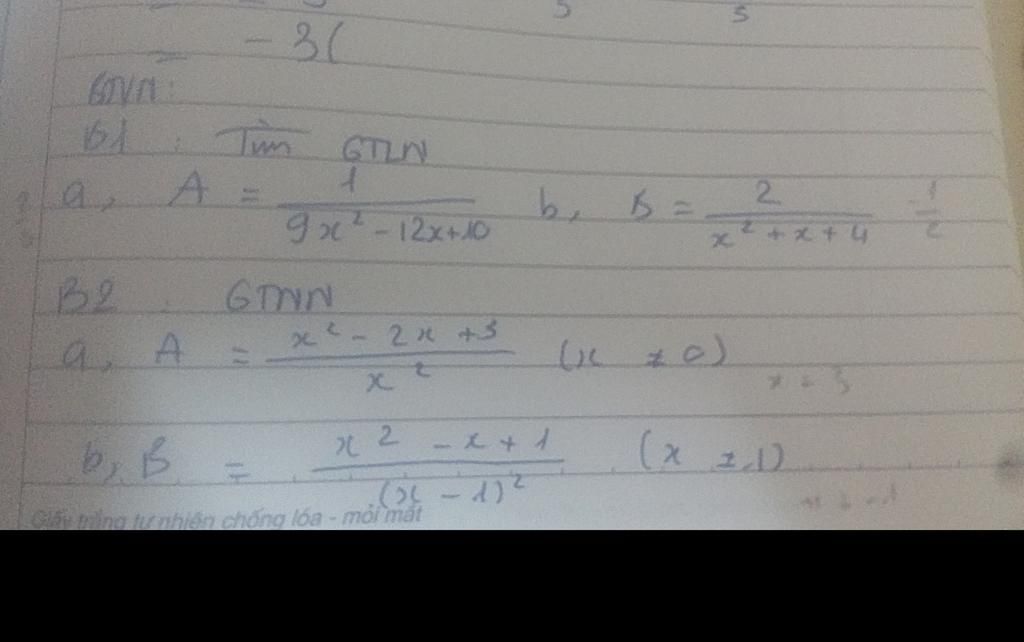 5 5
= - 3(
BTVN:
B1 : Tìm GTLN
a, A = 1 / (9x² - 12x + 10) b, B = 2 / (x² + x + 4) -1/2
B2 : GTNN
a, A = (x² - 2x + 3) / x² (x ≠ 0) x = 3
b, B = (x² - x + 1) / (x - 1)² (x ≠ 1)
Giấy trắng tự nhiên chống lóa - mỏi mắt